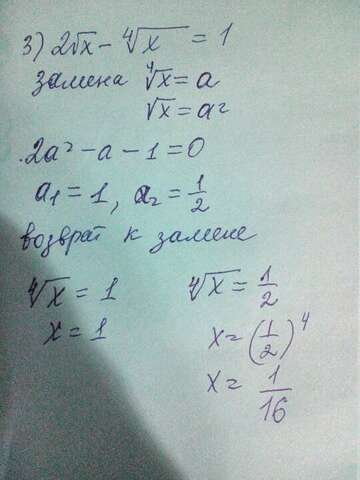 3) 2√x - ∜x = 1
замена ∜x = a
√x = a²
2a² - a - 1 = 0
a₁ = 1, a₂ = 1/2
возврат к замене
∜x = 1 ∜x = 1/2
x = 1 x = (1/2)⁴
x = 1/16